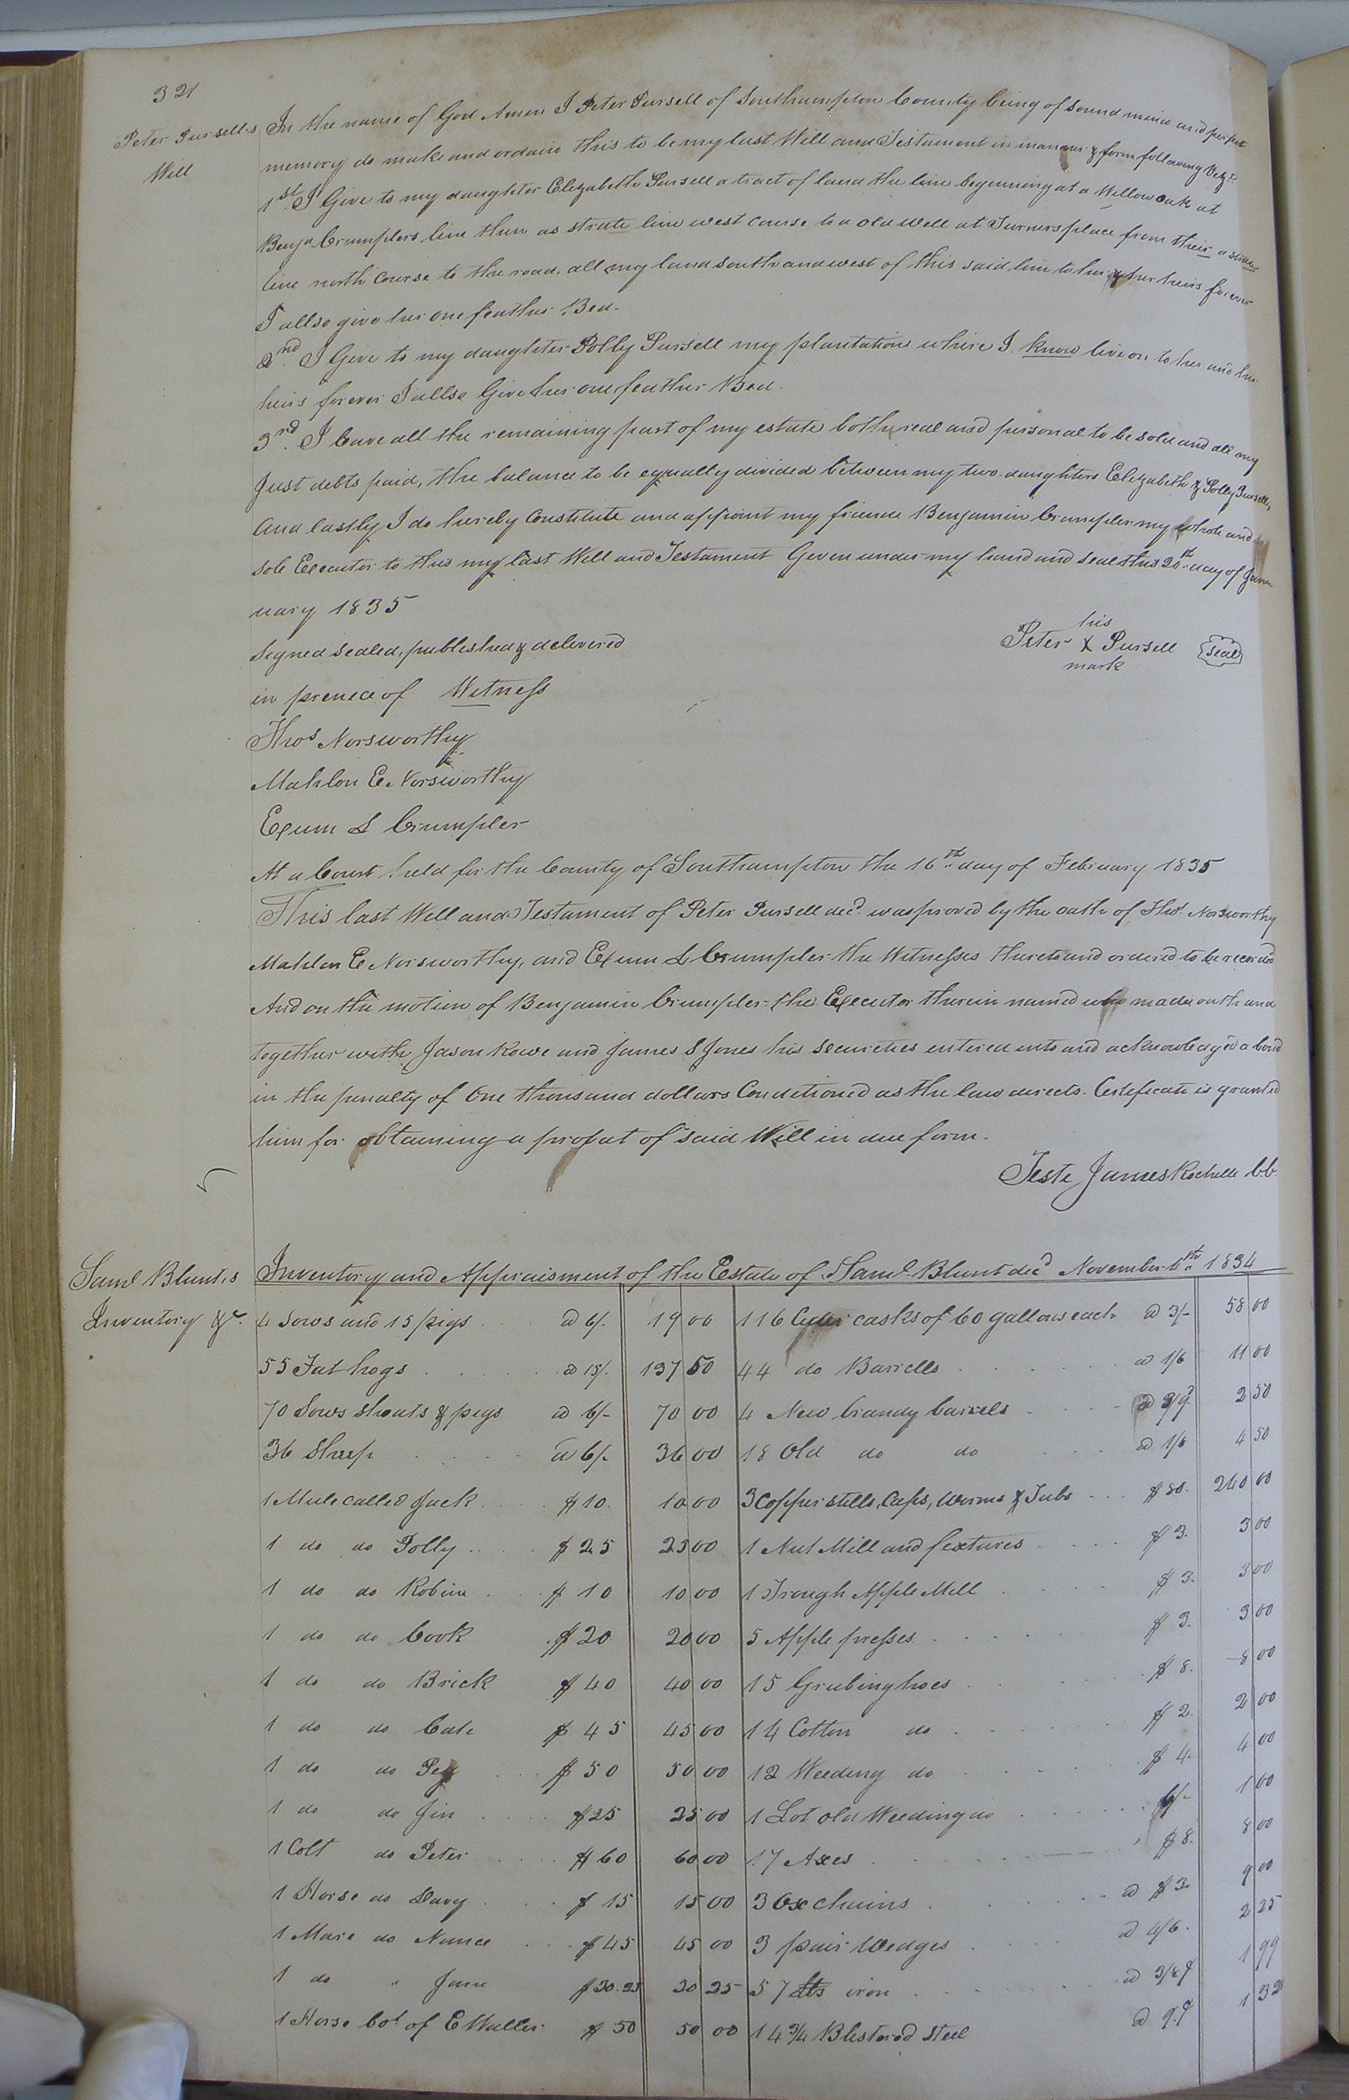 321
Peter Pursell's
Will
In the name of God Amen I Peter Pursell of Southampton County being of sound mind and perfect
memory do make and ordain this to be my last Will and Testament in manner & form following Viz:
1st I Give to my daughter Elizabeth Pursell a tract of land the line beginning at a Willow oak at
Benja Crumplers line then as strate line west course to a old well at Turners place from their a strate
line north course to the road, all my land south and west of this said line to her & her heirs forever
I allso give her one feather Bed.
2nd. I Give to my daughter Polly Pursell my plantation where I know live on to her and her
heirs forever I allso Give her one feather Bed.
3rd. I leave all the remaining part of my estate both real and personal to be sold and all my
Just debts paid, the balance to be equally divided between my two daughters Elizabeth & Polly Pursell,
And lastly I do hereby Constitute and appoint my friend Benjamin Crumpler my whole and
sole Executor to this my last Will and Testament Given under my hand and seal this 20th day of Jan-
uary 1835
Signed sealed, published & delivered
in presence of Witness
his
Peter X Pursell (seal)
mark
Thos Norsworthy
Mahlon E. Norsworthy
Exum L Crumpler
At a Court held for the County of Southampton the 16th day of February 1835
This last Will and Testament of Peter Pursell decd. was proved by the oath of Thos. Norsworthy
Mahlon E Norsworthy, and Exum L Crumpler the Witnesses thereto and ordered to be recorded
And on the motion of Benjamin Crumpler the Executor therein named who made oath and
together with Jason Rowe and James S Jones his securities entered into and acknowledged a bond
in the penalty of One thousand dollars Conditioned as the law directs. Certificate is granted
him for obtaining a probat of said Will in due form.
Teste James Rochelle C.C.
Saml Blunt's
Inventory &c.
Inventory and Appraisment of the Estate of Saml. Blunt decd November 1834
4 Sows and 15 pigs a 6/. 19 00
116 Cyder casks of 60 gallons each a 3/- 58 00
55 Fat hogs a 15/. 137 50
44 do Barrells a 1/6 11 00
70 Sows shoats & pigs a 6/- 70 00
4 New brandy barrels 2 50
36 Sheep a 6/- 36 00
18 Old do do a 1/6 4 50
1 Mule called Jack $10. 10 00
3 Copper stills, Caps, Worms & Tubs $80. 240 00
1 do do Polly $25 25 00
1 Nut Mill and fixtures $3. 3 00
1 do do Robin $10 10 00
1 Trough Apple Mill $3. 3 00
1 do do Cook $20 20 00
5 Apple presses $3. 3 00
1 do do Brick $40 40 00
15 Grubing hoes $8. 8 00
1 do do Cate $45 45 00
14 Cotton do $2. 2 00
1 do do Peg $50 50 00
12 Weeding do $4. 4 00
1 do do Jin $25 25 00
1 Lot old Weeding do 6/- 1 00
1 Colt do Peter $60 60 00
17 Axes $8. 8 00
1 Horse do Davy $15 15 00
3 Ox chains a $3. 9 00
1 Mare do Nance $45 45 00
3 pair Wedges a 4/6. 2 25
1 do " Jane $20.25 20 25
57 lbs iron 1 99
1 Horse bot of E Waller $50 50 00
14 3/4 Blistered steel a 9d 1 32